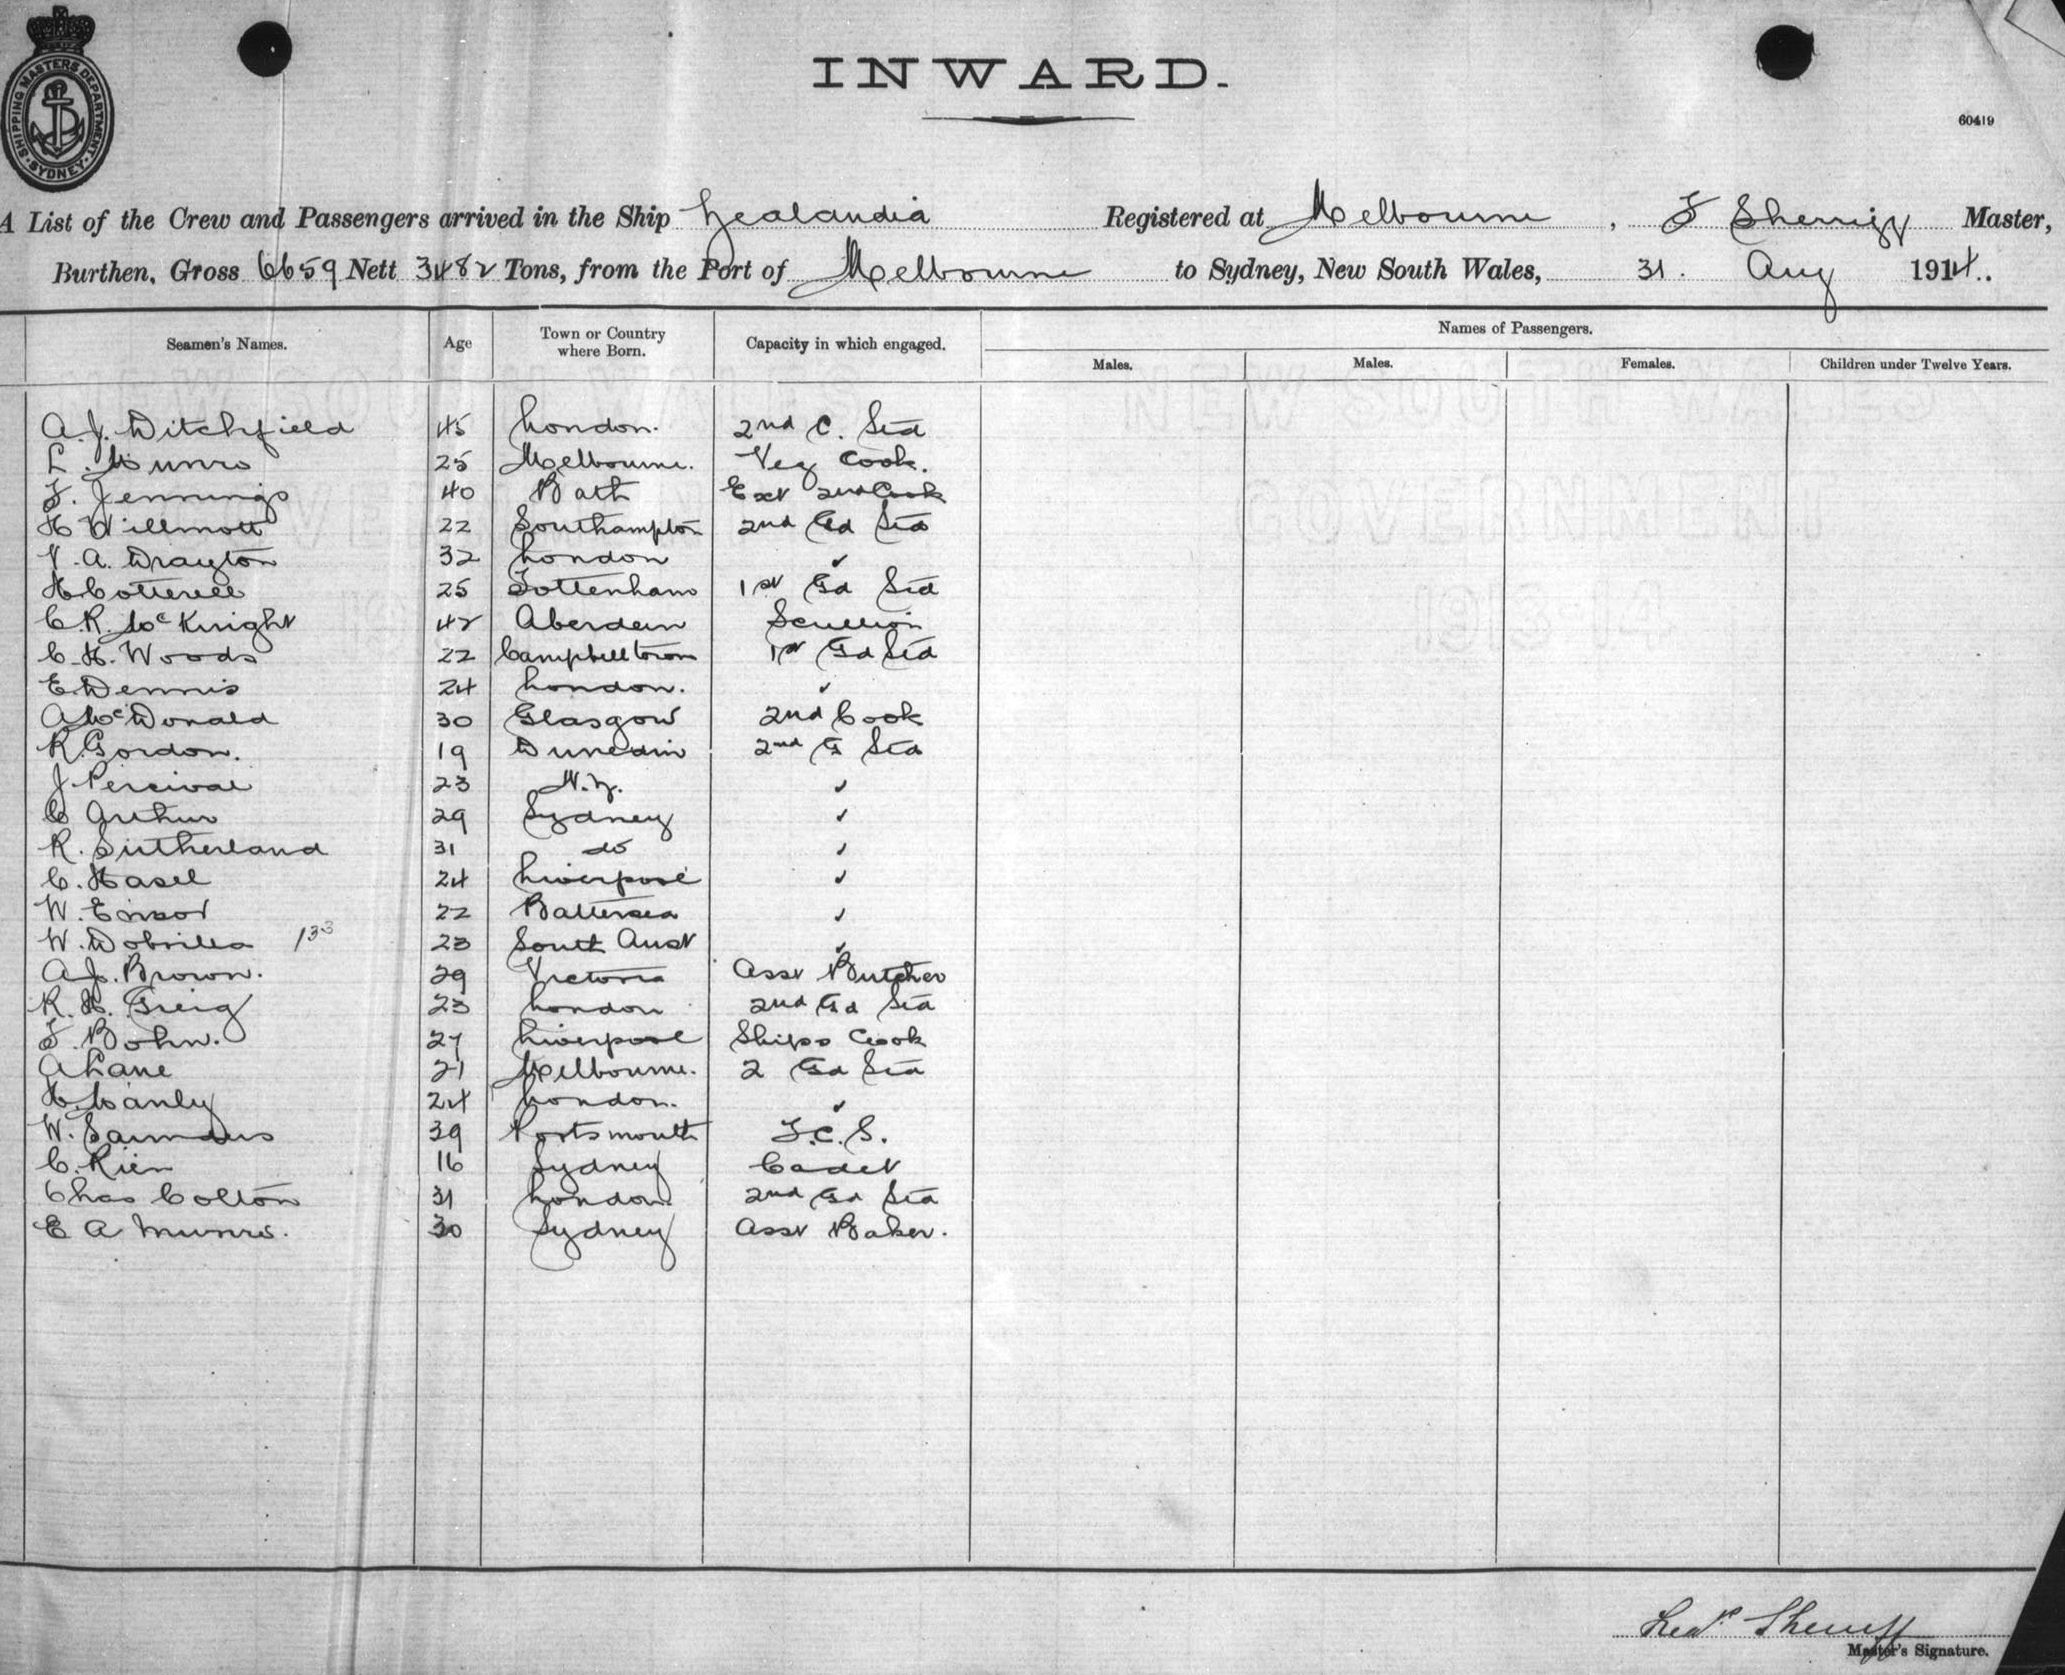 SHIPPING MASTERS DEPARTMENT · SYDNEY ·
INWARD.
60419
A List of the Crew and Passengers arrived in the Ship Zealandia Registered at Melbourne, F Sherriff Master,
Burthen, Gross 6659 Nett 3482 Tons, from the Port of Melbourne to Sydney, New South Wales, 31. Aug 1914.
Names of Passengers.
Seamen's Names. Age Town or Country where Born. Capacity in which engaged. Males. Males. Females. Children under Twelve Years.
A. J. Ditchfield 45 London. 2nd C. Std
L. Munro 25 Melbourne. Veg Cook.
F. Jennings 40 Bath Ext 2nd Cook
H Willmott 22 Southampton 2nd Gd Std
V. A. Drayton 32 London ✓
H Cotterell 25 Tottenham 1st Gd Std
C. R. McKnight 42 Aberdeen Scullion
C. H. Woods 22 Campbelltown 1st Gd Std
E Dennis 24 London. ✓
A McDonald 30 Glasgow 2nd Cook
R. Gordon. 19 Dunedin 2nd G Std
J. Percival 23 N.Z. ✓
C Arthur 29 Sydney ✓
R. Sutherland 31 do ✓
C. Hasel 24 Liverpool ✓
W. Ensor 22 Battersea ✓
W. 133 23 South Aust ✓
A J. Brown. 29 Victoria Asst Butcher
R. H. Greig 23 London 2nd Gd Std
F. Bohn. 27 Liverpool Ships Cook
A Lane 21 Melbourne. 2 Gd Std
H. Manly 24 London. ✓
W. Saunders 39 Portsmouth F.C.S.
C. 16 Sydney Cadet
Chas Colton 31 London. 2nd Gd Std
E A Munro. 30 Sydney Asst Baker.
Sherriff
Master's Signature.